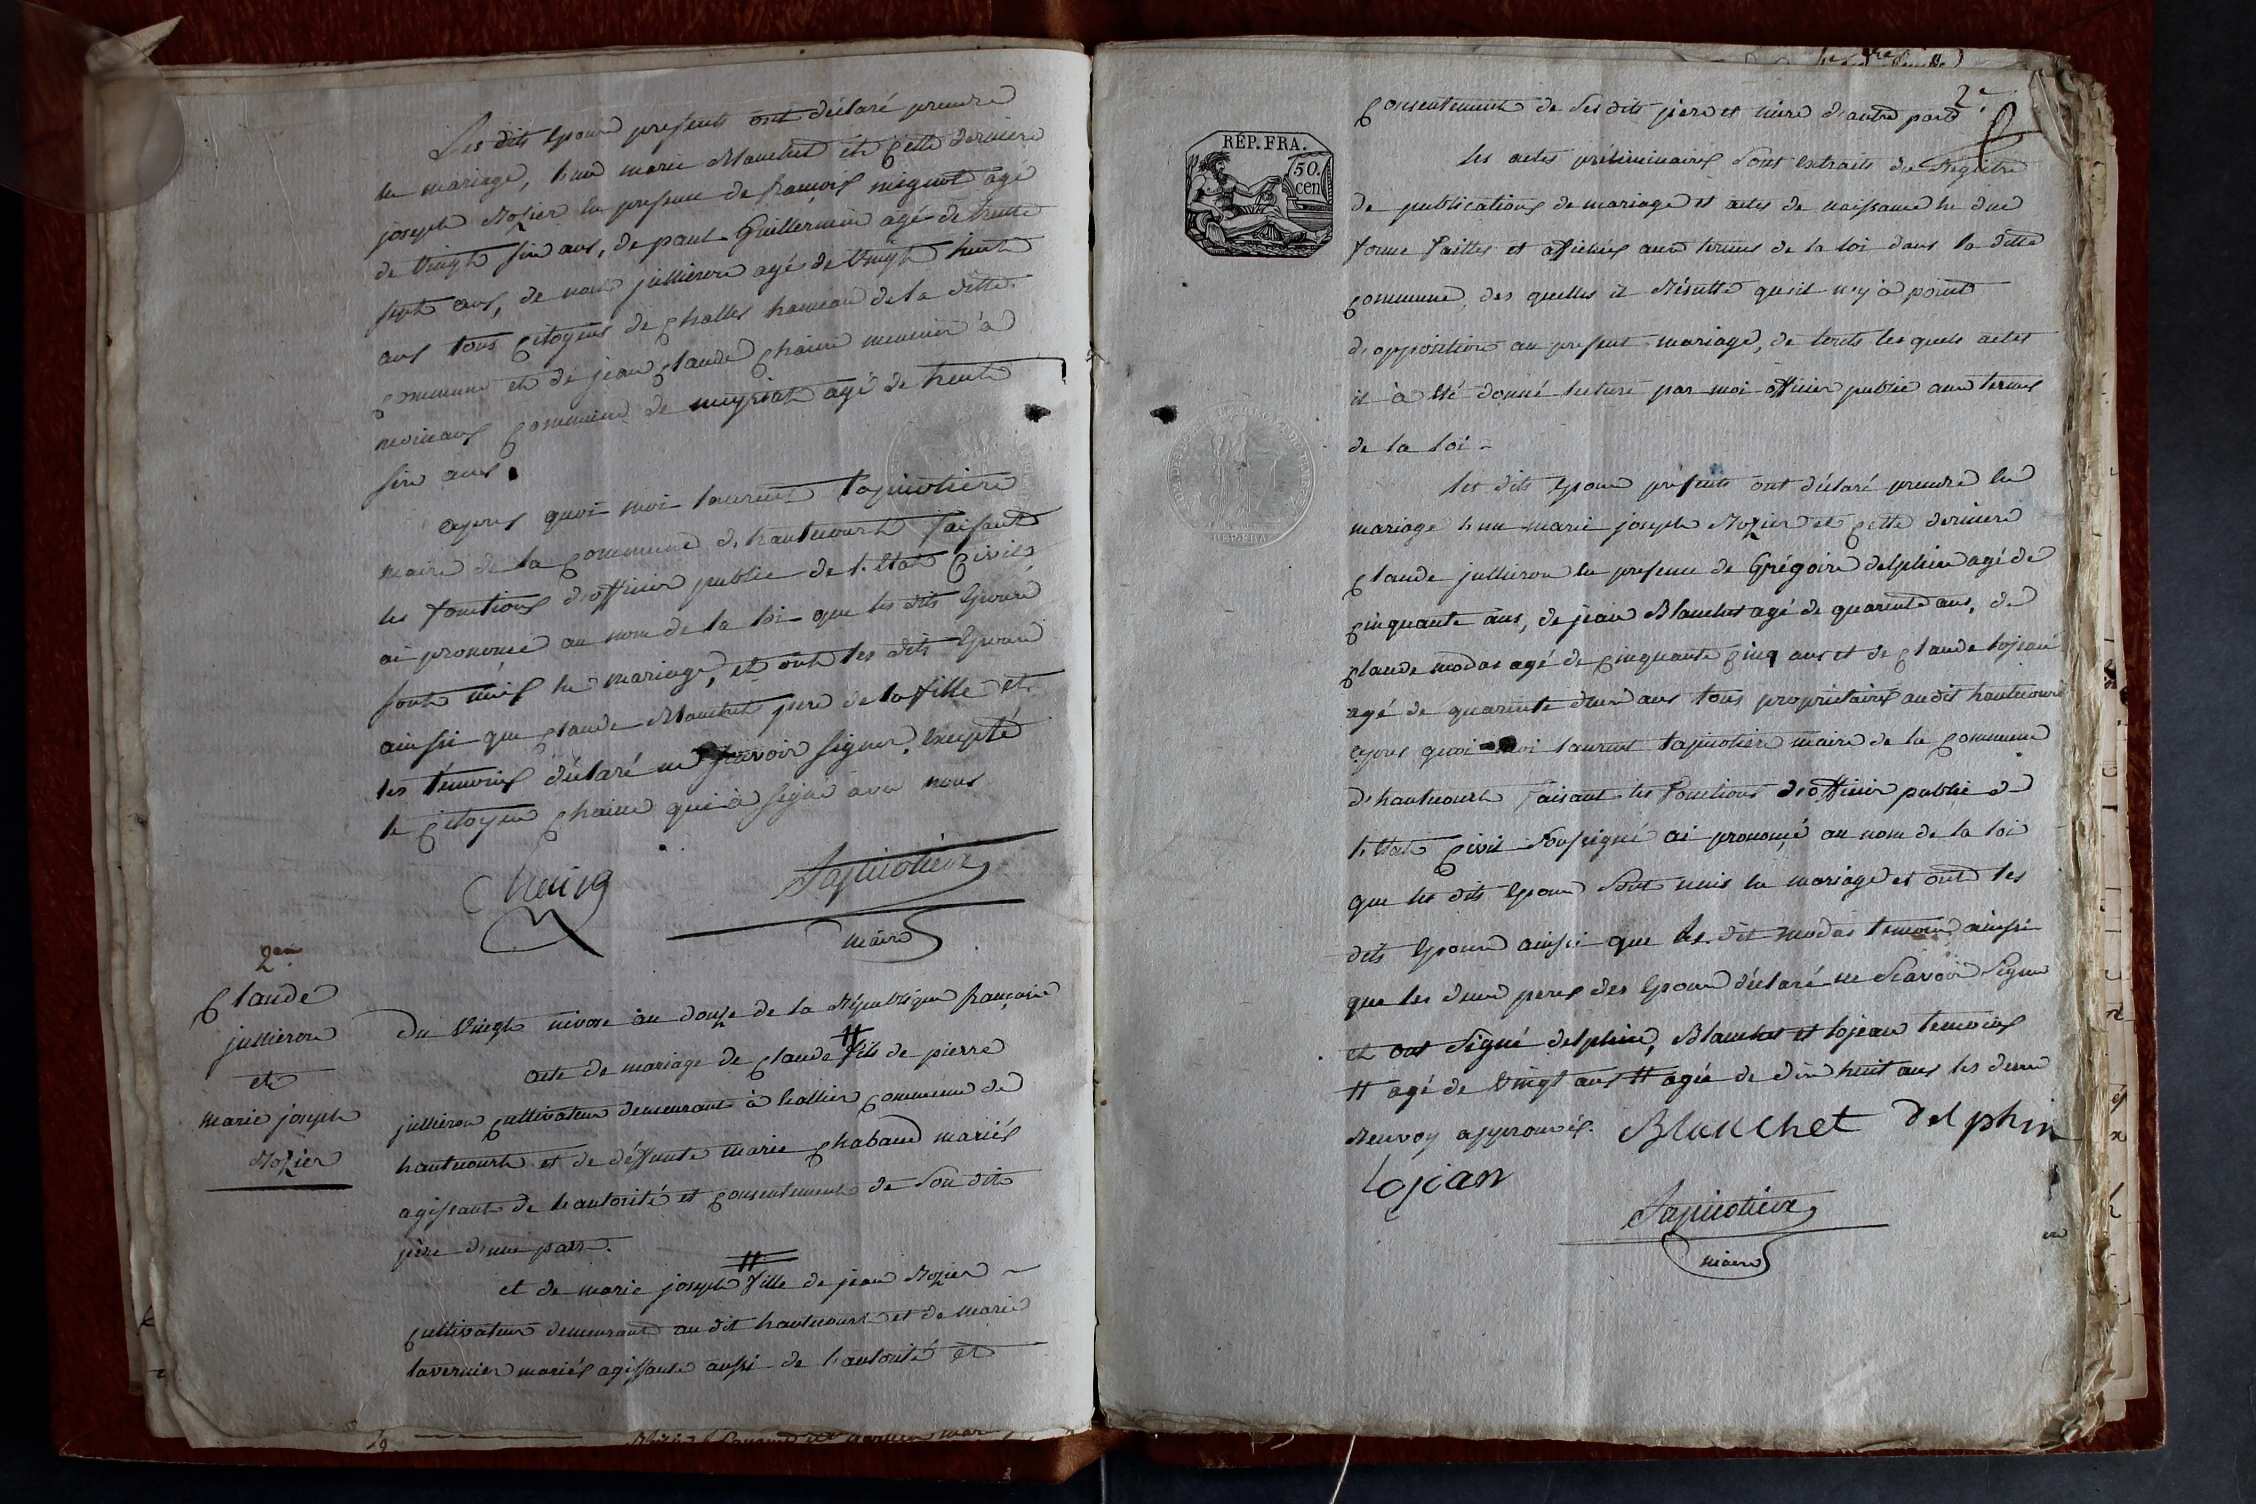 Les dits Epoux presents ont déclaré prendre
en mariage, l'un marie Blanchet et Cette derniere
joseph Rozier en presence de françois mignot agé
de Vingt six ans, de paul Guillermin agé de trente
sept ans, de noël jullieron agé de Vingt huit
ans tous Citoyens de Challes hameau de la ditte
Commune et de jean Claude Chaine meunier à
Commune de meyriat agé de trente
six ans.
apres quoi moi laurent Tapinotiere
maire de la Commune d'hautecourt faisant
les fonctions d'officier public de l'état Civil
ai prononcé au nom de la loi que les dits Epoux
sont unis en mariage, et ont les dits Epoux
ainsi que Claude Blanchet pere de la fille et
les témoins déclaré ne sçavoir signer, excepté
le Citoyen Chaine qui à signé avec nous
Chaine Tapinotiere
maire
2em
Claude
jullieron
et
marie joseph
Rozier
Du Vingt nivose an douze de la République française
acte de mariage de Claude # fils de pierre
jullieron Cultivateur demeurant à Commune de
hautecourt et de déffunte marie Chabaud mariés
agissant de l'autorité et Consentement de Son dit
père d'une part.
et de marie joseph # fille de jean Rozier
Cultivateur demeurant au dit hautecourt et de marie
tavernier mariés agissante aussi de l'autorité et
2e
Consentement de Ses dits père et mère d'autre part
RÉP. FRA.
50.
cen
les actes préliminaires Sont extraits du Registre
de publications de mariage et actes de naissance en due
forme faittes et affichées aux termes de la loi dans la ditte
Commune, des quelles il Résulte qu'il n'y à point
d'opposition au present mariage, de touts les quels actes
il à été donné lecture par moi officier public aux termes
de la loi -
les dits Epoux presents ont déclaré prendre en
mariage l'un marie joseph Rozier et Cette derniere
Claude jullieron en presence de Grégoire delphin agé de
Cinquante ans, de jean Blanchet agé de quarente ans, de
Claude modas agé de Cinquante Cinq ans et de Claude lojean
agé de quarente deux ans tous propriétaires au dit hautecourt
apres quoi moi laurent tapinotiere maire de la Commune
d'hautecourt faisant les fonctions d'officier public de
l'état Civil Soussigné ai prononçé au nom de la loi
que les dits Epoux Sont unis en mariage et ont les
dits Epoux ainsi que le dit modas temoin ainsi
que les deux peres des Epoux déclaré ne Scavoir Signer
et ont Signé delphin, Blanchet et lojean temoins
# agé de Vingt ans # agée de dix huit ans les deux
Renvoy approuvés. BLanchet delphin
Lojean
Tapinotiere
maire